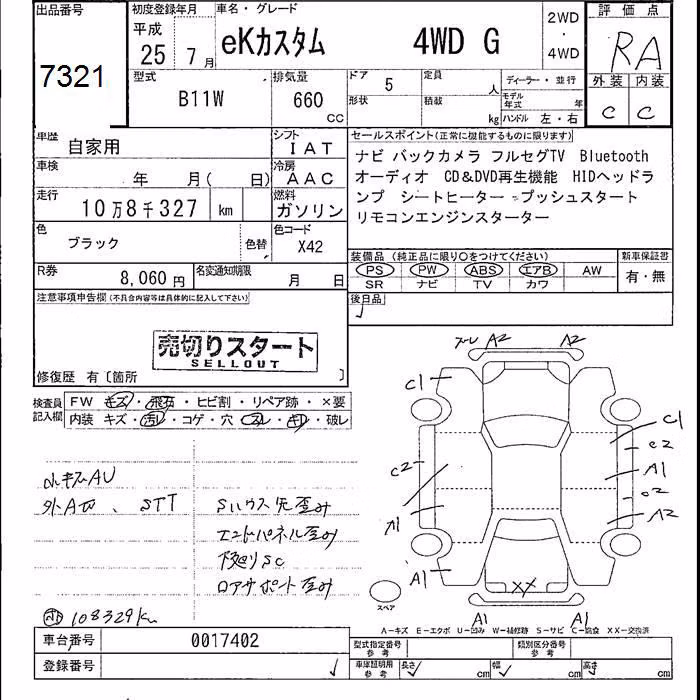 出品番号
7321
初度登録年月
平成
25 7月
車名・グレード
eKカスタム 4WD G
2WD
・
4WD
評価点
RA
外装 内装
C C
型式
B11W
排気量
660
CC
ドア 5
形状
定員 人
積載 kg
ディーラー・並行
モデル年式 年
ハンドル 左・右
車歴
自家用
シフト
IAT
車検
年 月( 日)
冷房
AAC
走行
10万8千327 km
燃料
ガソリン
色
ブラック
色替
色コード
X42
R券
8,060円
名変通知期限
月 日
セールスポイント(正常に機能するものに限ります)
ナビ バックカメラ フルセグTV Bluetooth
オーディオ CD&DVD再生機能 HIDヘッドラ
ンプ シートヒーター プッシュスタート
リモコンエンジンスターター
装備品(純正品に限り○をつけてください)
PS PW ABS エアB AW
SR ナビ TV カワ
新車保証書
有・無
後日品
注意事項申告欄(不具合内容等は具体的に記入して下さい)
売切りスタート
SELLOUT
修復歴 有〔箇所 〕
検査員
記入欄
FW キズ・飛石・ヒビ割・リペア跡・×要
内装 キズ・汚レ・コゲ・穴・スレ・キレ・破レ
小キズAU
外AW、STT
Sハウス先歪み
エンドパネル歪み
下廻りSC
ロアサポート歪み
108329km
A2
A2
C1
C2
A1
A1
C1
C2
A1
C2
A2
XX
A1
A1
スペア
A-キズ E-エクボ U-凹み W-補修跡 S-サビ C-腐食 XX-交換済
車台番号
0017402
登録番号
型式指定番号
参考
類別区分番号
参考
車庫証明用
参考
長さ cm
幅 cm
高さ cm